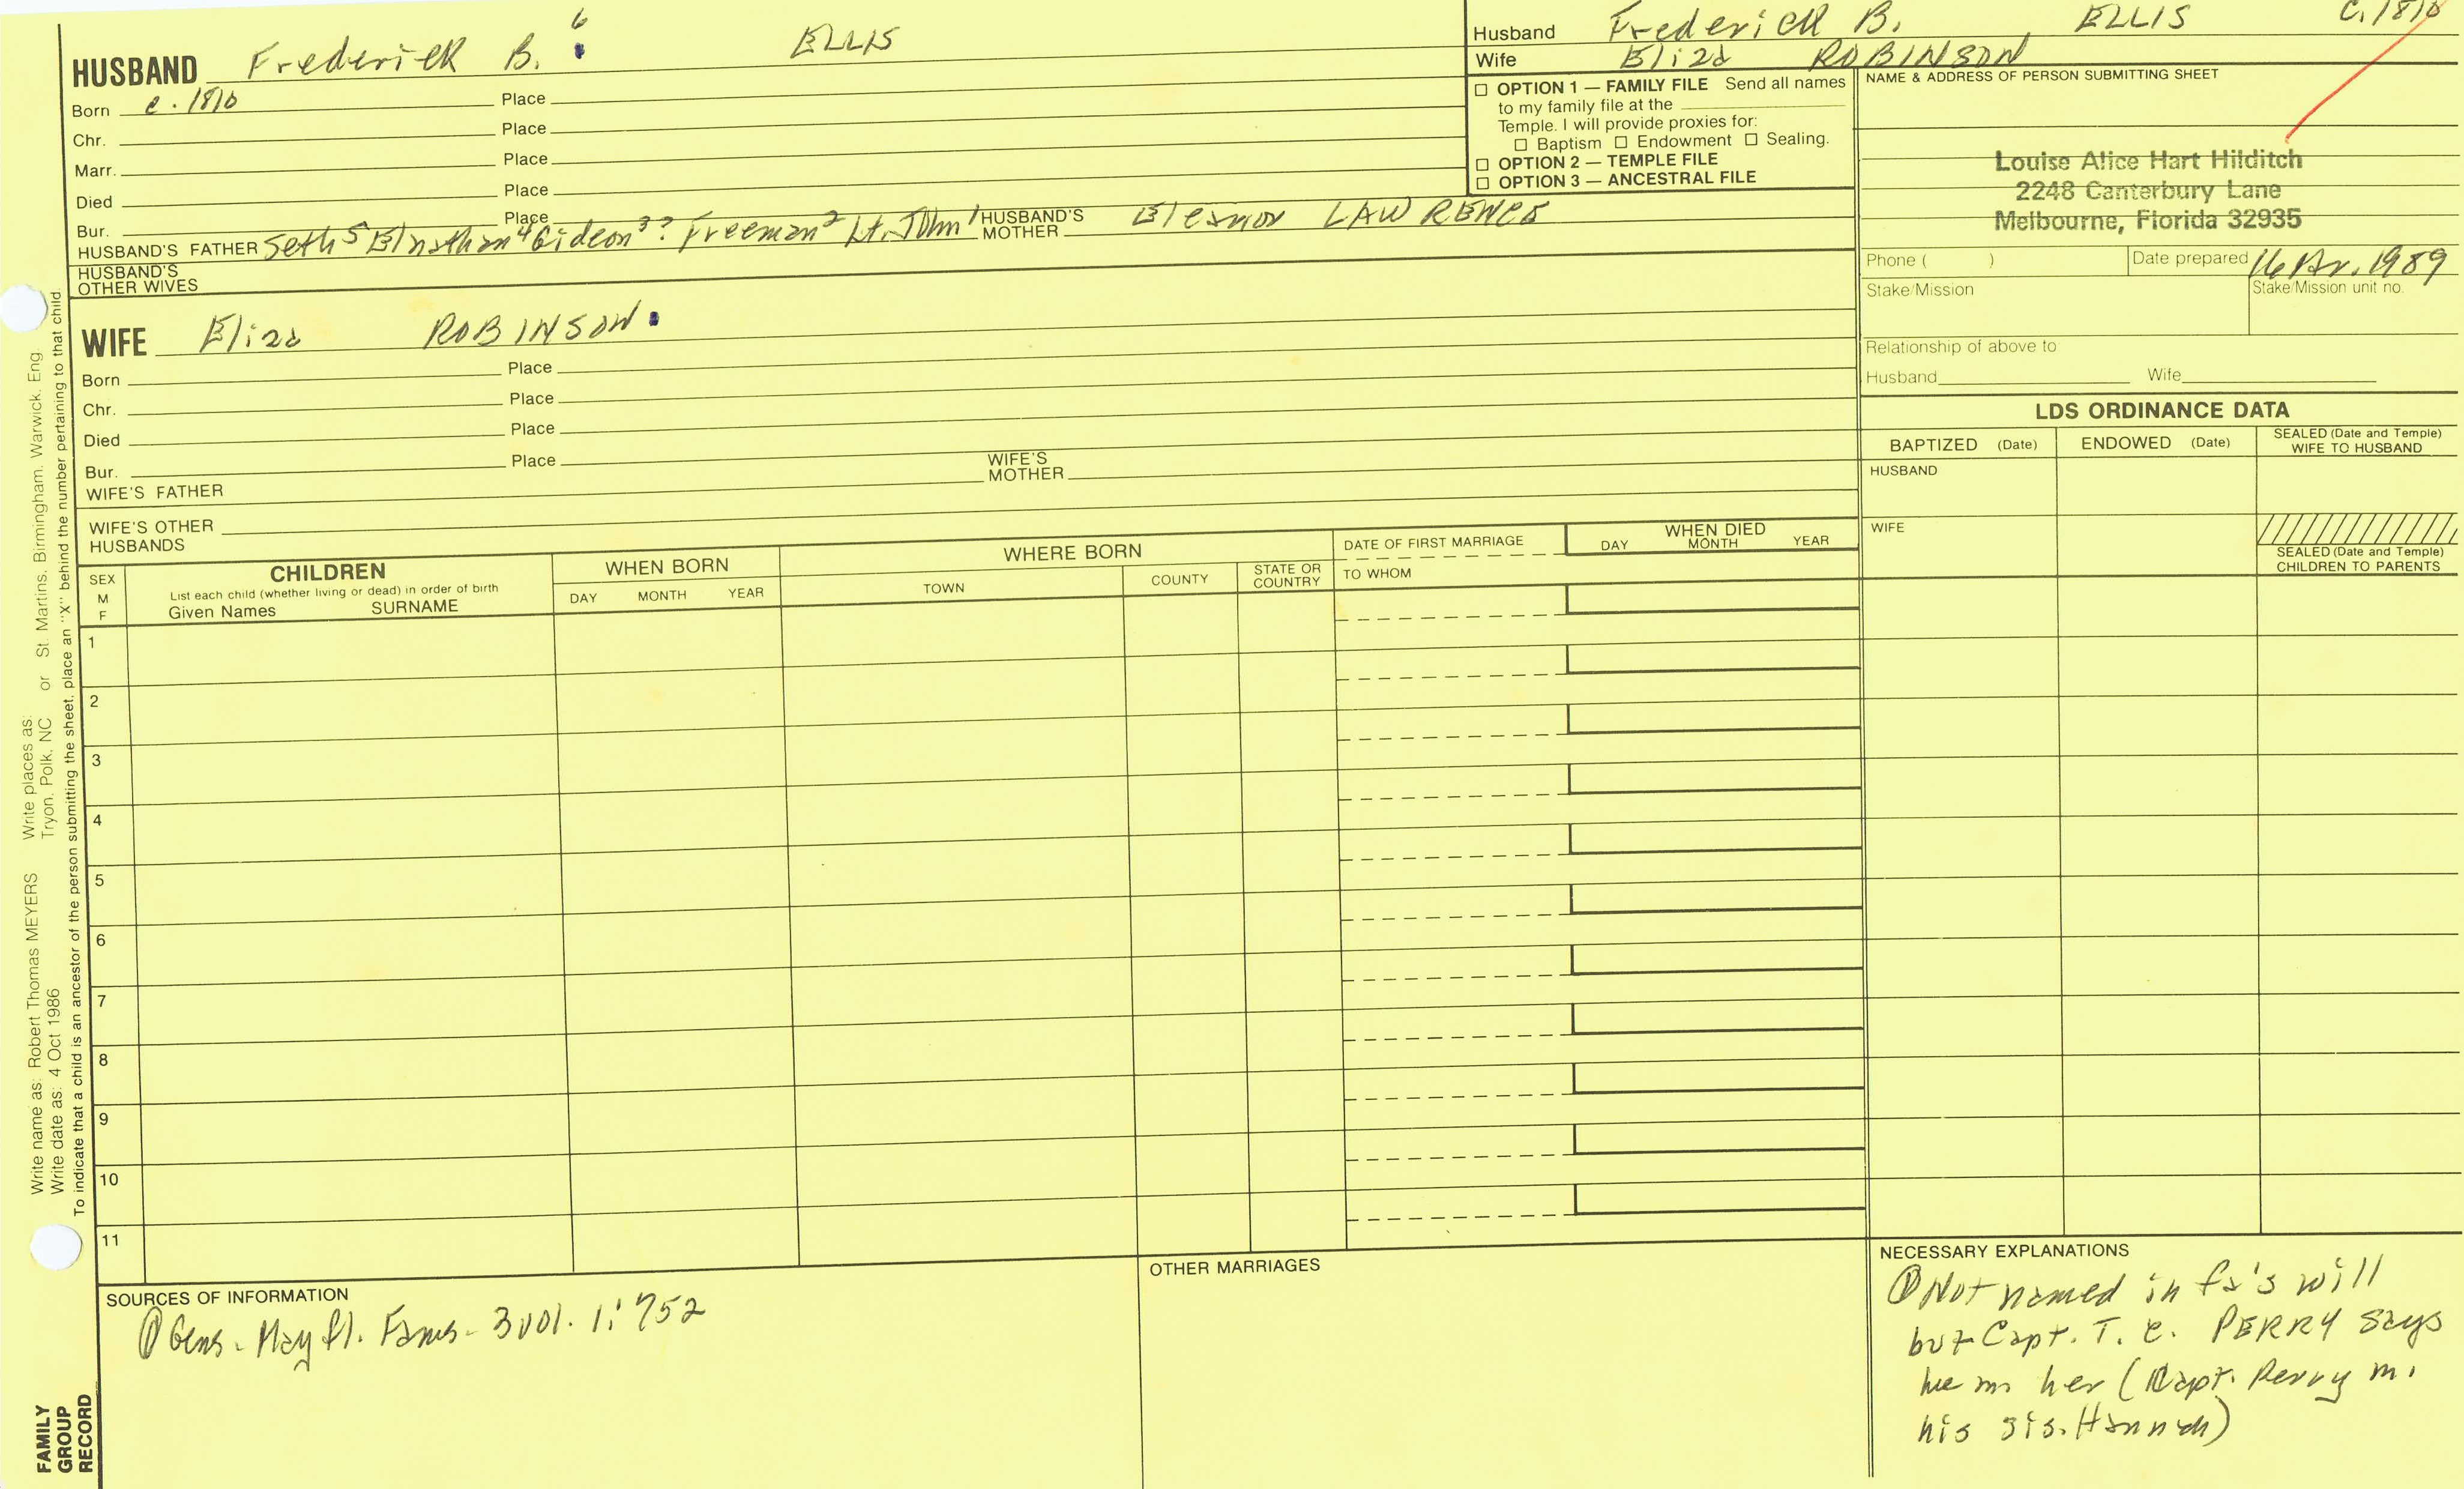 HUSBAND Frederick B. 6 ELLIS
Born c. 1810 Place
Chr. Place
Marr. Place
Died Place
Bur. Place
HUSBAND'S FATHER Seth5 Elnathan4 Gideon3? Freeman2 Lt. John1 HUSBAND'S MOTHER Eleanor LAWRENCE
HUSBAND'S OTHER WIVES
WIFE Eliza ROBINSON
Born Place
Chr. Place
Died Place
Bur. Place
WIFE'S FATHER WIFE'S MOTHER
WIFE'S OTHER HUSBANDS
Husband Frederick B. ELLIS c. 1810
Wife Eliza ROBINSON
☐ OPTION 1 — FAMILY FILE Send all names
to my family file at the
Temple. I will provide proxies for:
☐ Baptism ☐ Endowment ☐ Sealing.
☐ OPTION 2 — TEMPLE FILE
☐ OPTION 3 — ANCESTRAL FILE
NAME & ADDRESS OF PERSON SUBMITTING SHEET
Louise Alice Hart Hilditch
2248 Canterbury Lane
Melbourne, Florida 32935
Phone ( ) Date prepared 1989
Stake/Mission Stake/Mission unit no.
Relationship of above to
Husband Wife
LDS ORDINANCE DATA
BAPTIZED (Date) ENDOWED (Date) SEALED (Date and Temple) WIFE TO HUSBAND
HUSBAND
WIFE
SEALED (Date and Temple)
CHILDREN TO PARENTS
SEX M F
CHILDREN
List each child (whether living or dead) in order of birth
Given Names SURNAME
WHEN BORN
DAY MONTH YEAR
WHERE BORN
TOWN COUNTY STATE OR COUNTRY
DATE OF FIRST MARRIAGE
TO WHOM
WHEN DIED
DAY MONTH YEAR
1
2
3
4
5
6
7
8
9
10
11
SOURCES OF INFORMATION
① Gens. Mayfl. Fams. 3 vol. 1:752
OTHER MARRIAGES
NECESSARY EXPLANATIONS
① Not named in fa's will
but Capt. T. C. PERRY says
he m her (Capt. Perry m.
his sis. Hannah)
Write name as: Robert Thomas MEYERS Write places as: St. Martins, Birmingham, Warwick, Eng.
Write date as: 4 Oct 1986 Tryon, Polk, NC or
To indicate that a child is an ancestor of the person submitting the sheet, place an "X" behind the number pertaining to that child.
FAMILY
GROUP
RECORD